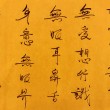 無受想行識
無眼耳鼻舌
身意無眼界